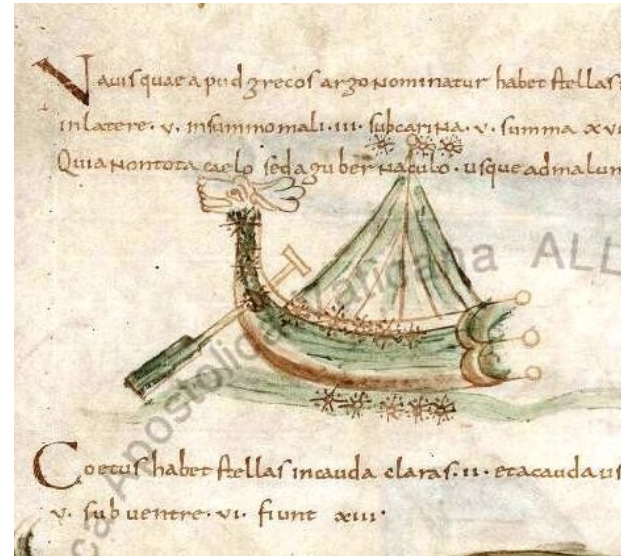 Nauis quae apud grecos argo nominatur habet stellas
in latere · v · in summo mali · iii · sub carina · v · summa xvi
Quia non tota caelo sed a gubernaculo · usque ad malum
Apostolica Vaticana ALL
Coetus habet stellas in cauda claras · ii · et a cauda us
v · sub uentre · vi · fiunt xiii ·